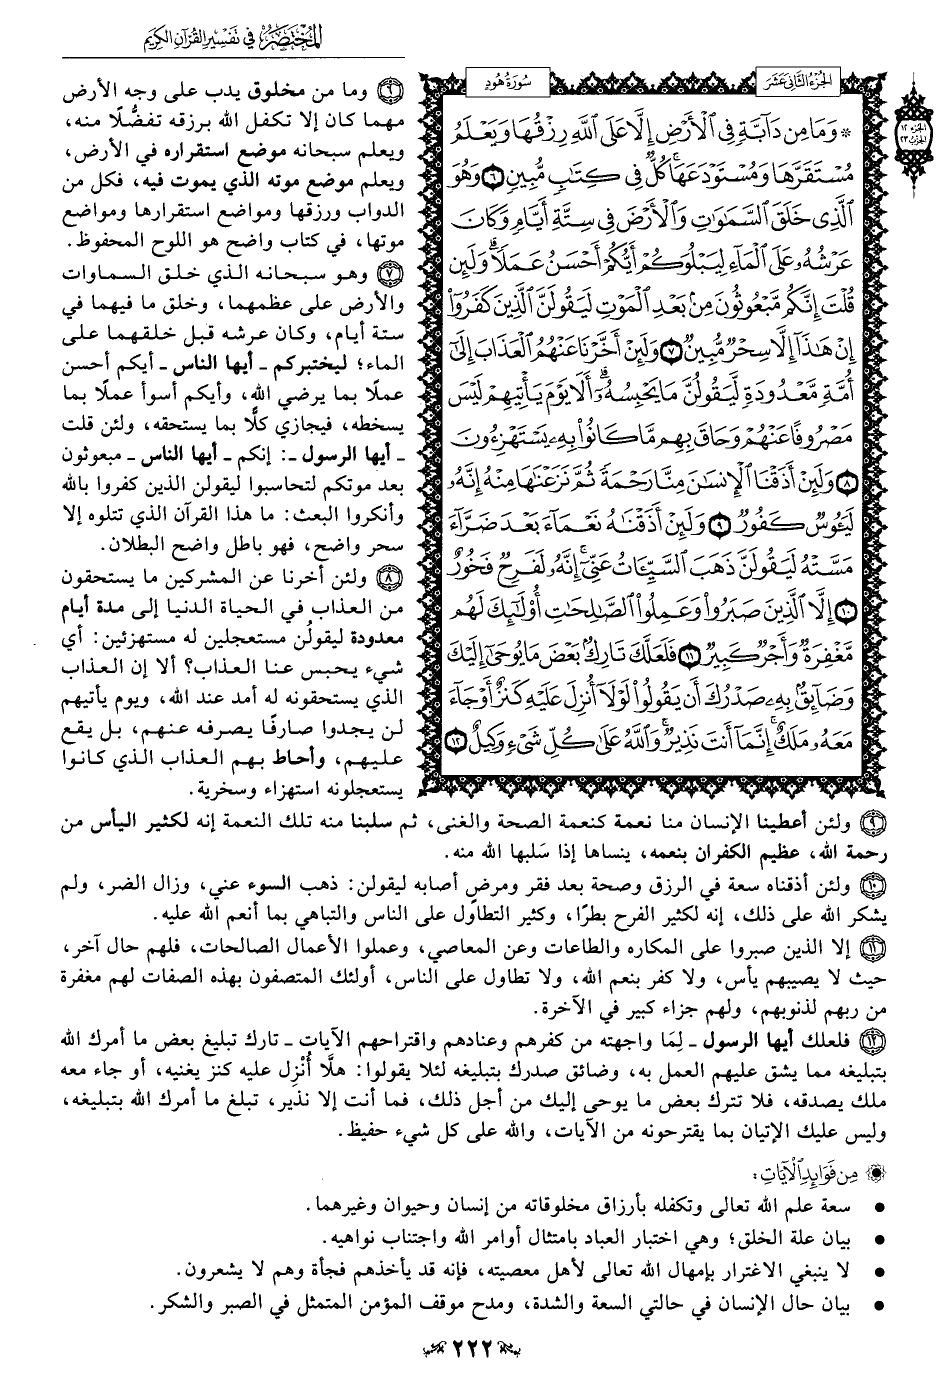 المختصر في تفسير القرآن الكريم
الجزء الثاني عشر
سورة هود
الجزء ١٢
الحزب ٢٣
۞ وَمَا مِن دَآبَّةٍ فِي ٱلْأَرْضِ إِلَّا عَلَى ٱللَّهِ رِزْقُهَا وَيَعْلَمُ
مُسْتَقَرَّهَا وَمُسْتَوْدَعَهَا ۚ كُلٌّ فِي كِتَٰبٍ مُّبِينٍ ٦ وَهُوَ
ٱلَّذِي خَلَقَ ٱلسَّمَٰوَٰتِ وَٱلْأَرْضَ فِي سِتَّةِ أَيَّامٍ وَكَانَ
عَرْشُهُۥ عَلَى ٱلْمَآءِ لِيَبْلُوَكُمْ أَيُّكُمْ أَحْسَنُ عَمَلًا ۗ وَلَئِن
قُلْتَ إِنَّكُم مَّبْعُوثُونَ مِنۢ بَعْدِ ٱلْمَوْتِ لَيَقُولَنَّ ٱلَّذِينَ كَفَرُوٓا۟
إِنْ هَٰذَآ إِلَّا سِحْرٌ مُّبِينٌ ٧ وَلَئِنْ أَخَّرْنَا عَنْهُمُ ٱلْعَذَابَ إِلَىٰٓ
أُمَّةٍ مَّعْدُودَةٍ لَّيَقُولُنَّ مَا يَحْبِسُهُۥٓ ۗ أَلَا يَوْمَ يَأْتِيهِمْ لَيْسَ
مَصْرُوفًا عَنْهُمْ وَحَاقَ بِهِم مَّا كَانُوا۟ بِهِۦ يَسْتَهْزِءُونَ
٨ وَلَئِنْ أَذَقْنَا ٱلْإِنسَٰنَ مِنَّا رَحْمَةً ثُمَّ نَزَعْنَٰهَا مِنْهُ إِنَّهُۥ
لَيَـُٔوسٌ كَفُورٌ ٩ وَلَئِنْ أَذَقْنَٰهُ نَعْمَآءَ بَعْدَ ضَرَّآءَ
مَسَّتْهُ لَيَقُولَنَّ ذَهَبَ ٱلسَّيِّـَٔاتُ عَنِّيٓ ۚ إِنَّهُۥ لَفَرِحٌ فَخُورٌ
١٠ إِلَّا ٱلَّذِينَ صَبَرُوا۟ وَعَمِلُوا۟ ٱلصَّٰلِحَٰتِ أُو۟لَٰٓئِكَ لَهُم
مَّغْفِرَةٌ وَأَجْرٌ كَبِيرٌ ١١ فَلَعَلَّكَ تَارِكٌۢ بَعْضَ مَا يُوحَىٰٓ إِلَيْكَ
وَضَآئِقٌۢ بِهِۦ صَدْرُكَ أَن يَقُولُوا۟ لَوْلَآ أُنزِلَ عَلَيْهِ كَنزٌ أَوْ جَآءَ
مَعَهُۥ مَلَكٌ ۚ إِنَّمَآ أَنتَ نَذِيرٌ ۚ وَٱللَّهُ عَلَىٰ كُلِّ شَيْءٍ وَكِيلٌ ١٢
٦ وما من مخلوق يدب على وجه الأرض
مهما كان إلا تكفل الله برزقه تفضُّلًا منه،
ويعلم سبحانه موضع استقراره في الأرض،
ويعلم موضع موته الذي يموت فيه، فكل من
الدواب ورزقها ومواضع استقرارها ومواضع
موتها، في كتاب واضح هو اللوح المحفوظ.
٧ وهو سبحانه الذي خلق السماوات
والأرض على عظمهما، وخلق ما فيهما في
ستة أيام، وكان عرشه قبل خلقهما على
الماء؛ ليختبركم - أيها الناس - أيكم أحسن
عملًا بما يرضي الله، وأيكم أسوأ عملًا بما
يسخطه، فيجازي كلًّا بما يستحقه، ولئن قلت
- أيها الرسول -: إنكم - أيها الناس - مبعوثون
بعد موتكم لتحاسبوا ليقولن الذين كفروا بالله
وأنكروا البعث: ما هذا القرآن الذي تتلوه إلا
سحر واضح، فهو باطل واضح البطلان.
٨ ولئن أخرنا عن المشركين ما يستحقون
من العذاب في الحياة الدنيا إلى مدة أيام
معدودة ليقولُن مستعجلين له مستهزئين: أي
شيء يحبس عنا العذاب؟ ألا إن العذاب
الذي يستحقونه له أمد عند الله، ويوم يأتيهم
لن يجدوا صارفًا يصرفه عنهم، بل يقع
عليهم، وأحاط بهم العذاب الذي كانوا
يستعجلونه استهزاء وسخرية.
٩ ولئن أعطينا الإنسان منا نعمة كنعمة الصحة والغنى، ثم سلبنا منه تلك النعمة إنه لكثير اليأس من
رحمة الله، عظيم الكفران بنعمه، ينساها إذا سَلبها الله منه.
١٠ ولئن أذقناه سعة في الرزق وصحة بعد فقر ومرض أصابه ليقولن: ذهب السوء عني، وزال الضر، ولم
يشكر الله على ذلك، إنه لكثير الفرح بطرًا، وكثير التطاول على الناس والتباهي بما أنعم الله عليه.
١١ إلا الذين صبروا على المكاره والطاعات وعن المعاصي، وعملوا الأعمال الصالحات، فلهم حال آخر،
حيث لا يصيبهم يأس، ولا كفر بنعم الله، ولا تطاول على الناس، أولئك المتصفون بهذه الصفات لهم مغفرة
من ربهم لذنوبهم، ولهم جزاء كبير في الآخرة.
١٢ فلعلك أيها الرسول - لِمَا واجهته من كفرهم وعنادهم واقتراحهم الآيات - تارك تبليغ بعض ما أمرك الله
بتبليغه مما يشق عليهم العمل به، وضائق صدرك بتبليغه لئلا يقولوا: هلَّا أُنْزِل عليه كنز يغنيه، أو جاء معه
ملك يصدقه، فلا تترك بعض ما يوحى إليك من أجل ذلك، فما أنت إلا نذير، تبلغ ما أمرك الله بتبليغه،
وليس عليك الإتيان بما يقترحونه من الآيات، والله على كل شيء حفيظ.
من فوائد الآيات:
• سعة علم الله تعالى وتكفله بأرزاق مخلوقاته من إنسان وحيوان وغيرهما.
• بيان علة الخلق؛ وهي اختبار العباد بامتثال أوامر الله واجتناب نواهيه.
• لا ينبغي الاغترار بإمهال الله تعالى لأهل معصيته، فإنه قد يأخذهم فجأة وهم لا يشعرون.
• بيان حال الإنسان في حالتي السعة والشدة، ومدح موقف المؤمن المتمثل في الصبر والشكر.
٢٢٢